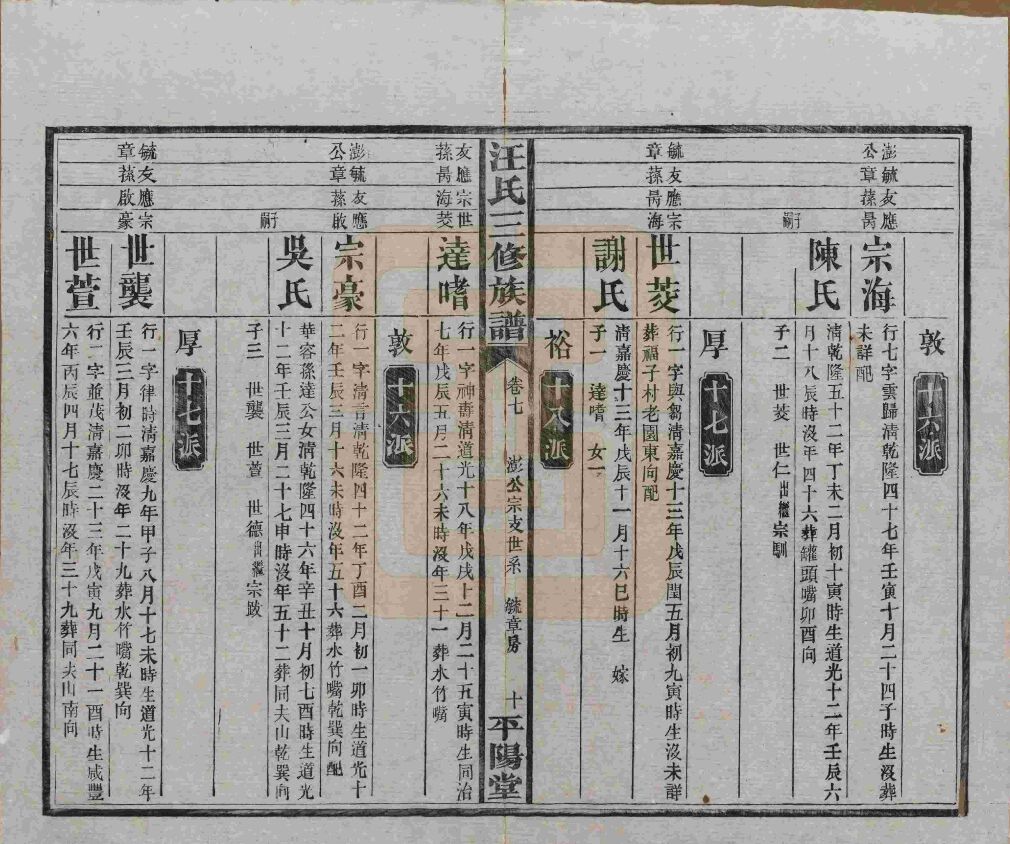 敦
十六派
澎毓友應
公章蓀昺
宗海
行七字雲歸清乾隆四十七年壬寅十月二十四子時生沒葬
未詳配
子嗣
陳氏
清乾隆五十二年丁未二月初十寅時生道光十二年壬辰六
月十八辰時沒年四十六葬罐頭嘴卯酉向
子二 世茭 世仁出繼宗馴
厚
十七派
毓友應宗
章蓀昺海
世茭
行一字與芻清嘉慶十三年戊辰閏五月初九寅時生沒未詳
葬福子村老園東向配
謝氏
清嘉慶十三年戊辰十一月十六巳時生
子一 達嗜 女一 嫁
裕
十八派
汪氏三修族譜
卷七
澎公宗支世系 毓章房
十
平陽堂
友應宗世
蓀昺海茭
達嗜
行一字神壽清道光十八年戊戌十二月二十五寅時生同治
七年戊辰五月二十六未時沒年三十一葬水竹嘴
敦
十六派
澎毓友應
公章蓀啟
宗豪
行一字清言清乾隆四十二年丁酉二月初一卯時生道光十
二年壬辰三月十六未時沒年五十六葬水竹嘴乾巽向配
子嗣
吳氏
華容孫達公女清乾隆四十六年辛丑十月初七酉時生道光
十二年壬辰三月二十七申時沒年五十二葬同夫山乾巽向
子三 世龑 世萱 世德出繼宗跋
厚
十七派
毓友應宗
章蓀啟豪
世龑
行一字律時清嘉慶九年甲子八月十七未時生道光十二年
壬辰三月初二卯時沒年二十九葬水竹嘴乾巽向
世萱
行二字並茂清嘉慶二十三年戊寅九月二十一酉時生咸豐
六年丙辰四月十七辰時沒年三十九葬同夫山南向